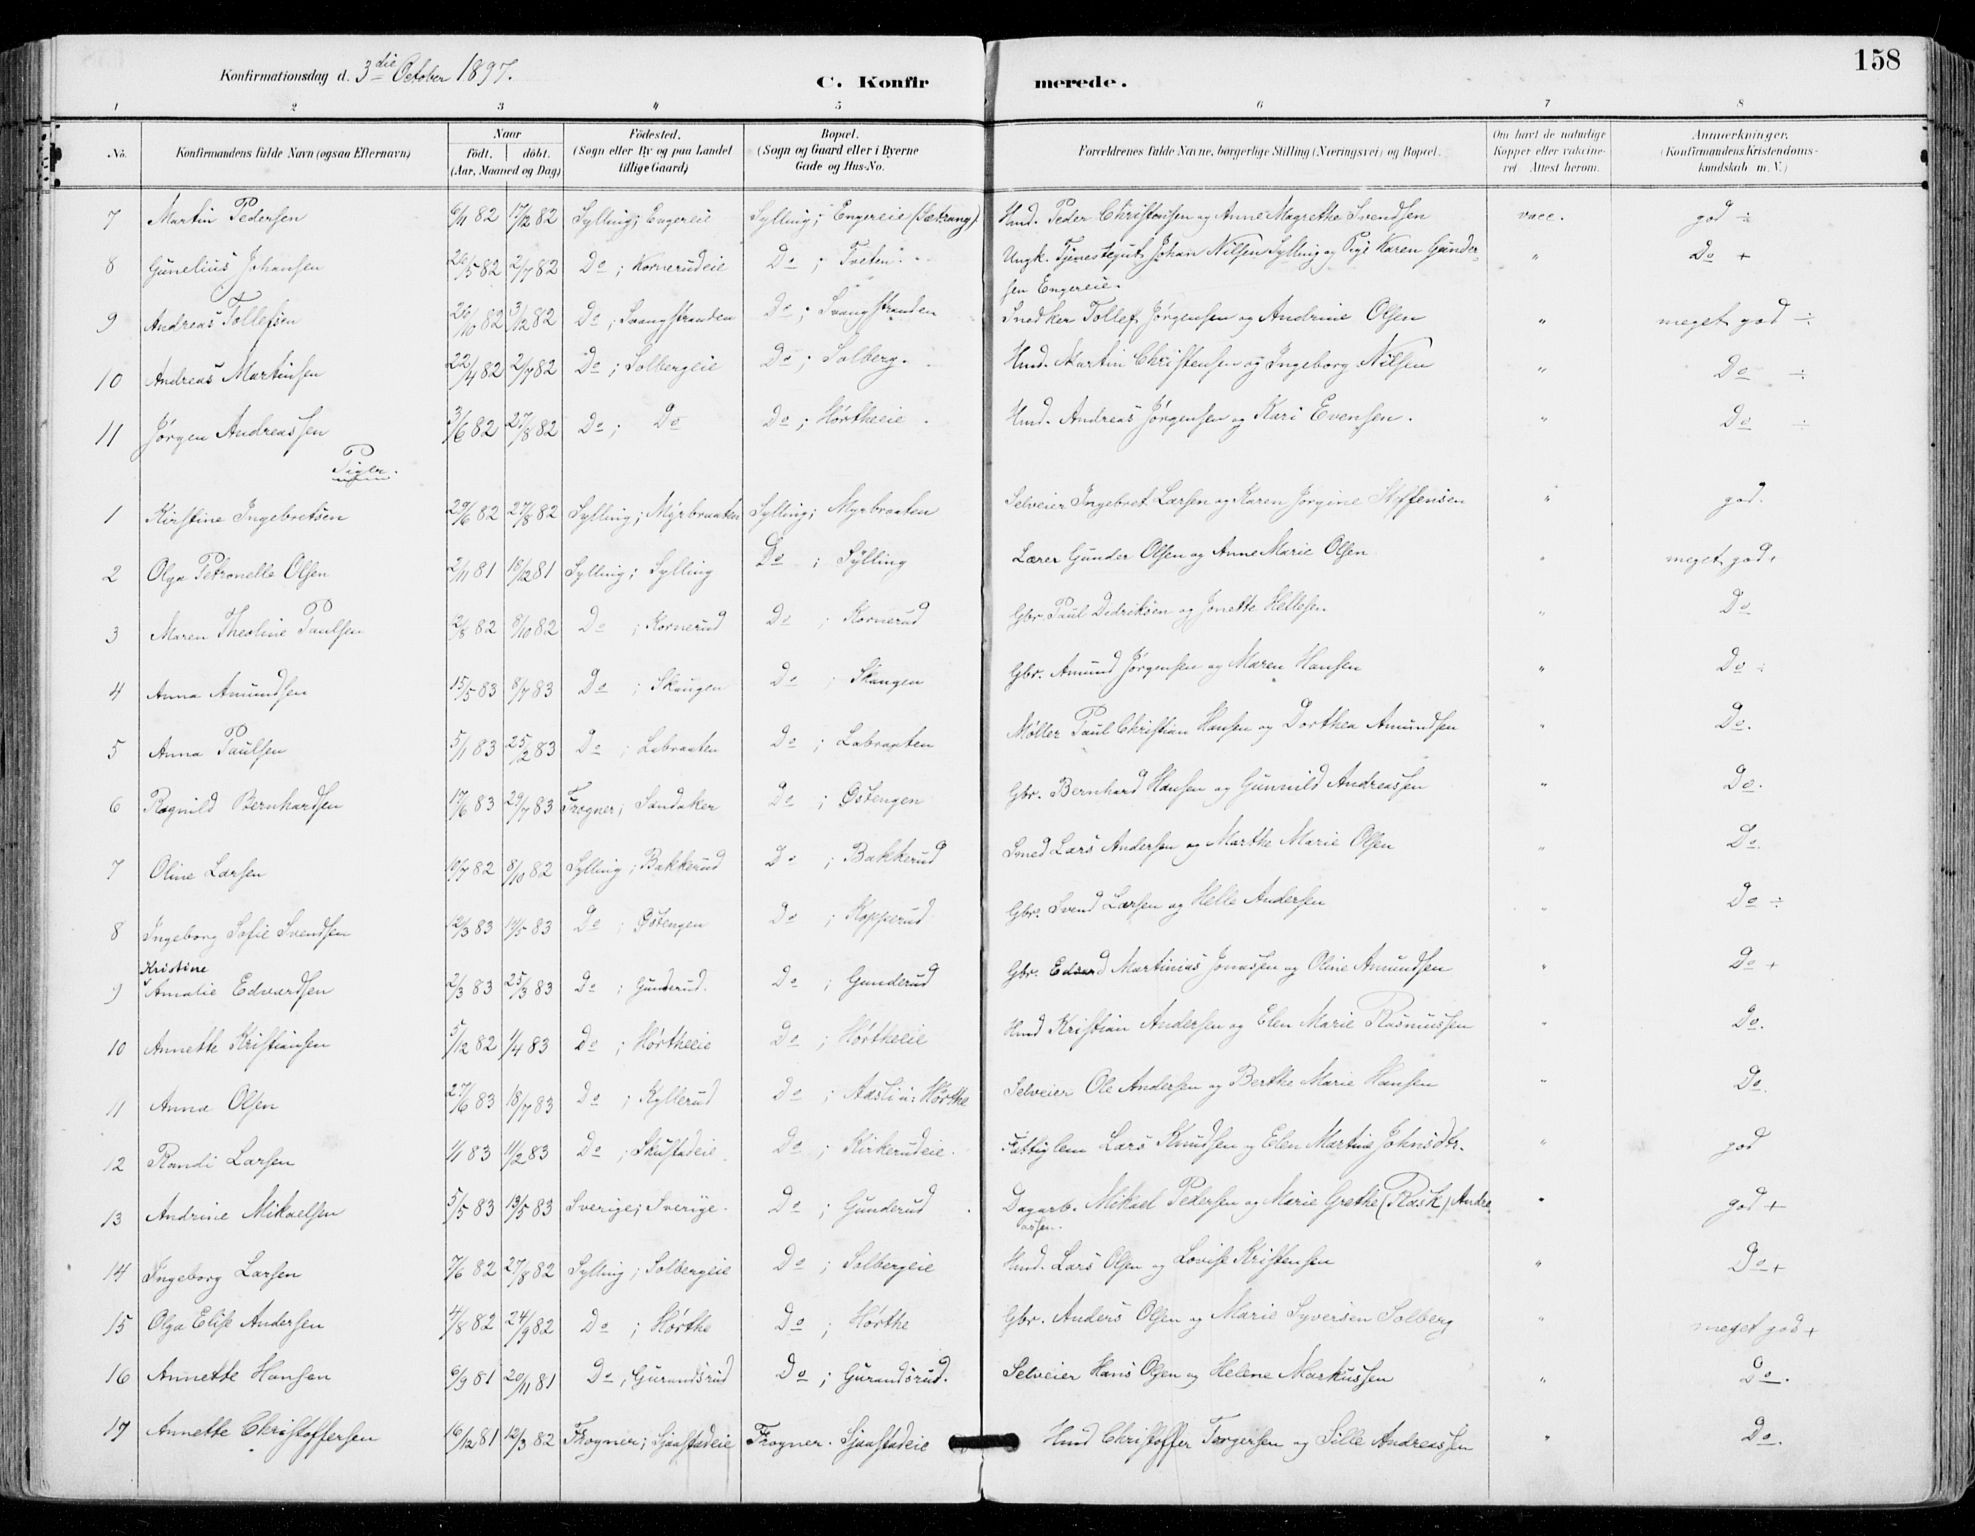 158
Konfirmationsdag d. 3die October 1897.
C. Konfirmerede.
1 2 3 4 5 6 7 8
No. Konfirmandens fulde Navn (ogsaa Efternavn) Naar födt. döbt. (Aar, Maaned og Dag) Födested. (Sogn eller By og paa Landet tillige Gaard) Bopæl. (Sogn og Gaard eller i Byerne Gade og Hus-No. Forældrenes fulde Navne, borgerlige Stilling (Næringsvei) og Bopæl. Om havt de naturlige Kopper eller vakcineret. Attest herom. Anmærkninger. (Konfirmandens Kristendomskundskab m. V.)
7 Martin Pedersen 6/11 82 17/12 82 Sylling; Engereie Sylling; Engereie (Sætrang) Hmd. Peder Christensen og Anne Magrethe Svendsen vacc. god ÷
8 Gunelius Johansen 26/5 82 2/7 82 Do ; Kornerudeie Do ; Tveten Ungk. Tjenestegut Johan Nilsen Sylling og Pige Karen Gundersen Engereie. " Do +
9 Andreas Tollefsen 26/10 82 3/12 82 Do ; Svangstranden Do ; Svangstranden Snedker Tollef Jørgensen og Andrine Olsen " meget god ÷
10 Andreas Martinsen 22/4 82 2/7 82 Do ; Solbergeie Do ; Solberg. Hmd. Martin Christensen og Ingeborg Nilsen " Do ÷
11 Jørgen Andreassen 3/6 82 27/8 82 Do ; Do Do ; Hørtheeie Hmd. Andreas Jørgensen og Kari Evensen. " Do ÷
Piger.
1 Kirstine Ingebretsen 29/6 82 27/8 82 Sylling; Myrbraaten Sylling; Myrbraaten Selveier Ingebret Larsen og Karen Jørgine Steffensen " god.
2 Olga Petronelle Olsen 2/11 81 18/12 81 Sylling; Sylling Do ; Sylling Lærer Gunder Olsen og Anne Marie Olsen " meget god +
3 Maren Theoline Paulsen 12/8 82 8/10 82 Do ; Kornerud Do ; Kornerud Gbr. Paul Dedriksen og Jonette Hellesen " Do
4 Anna Amundsen 15/5 83 8/7 83 Do ; Skaugen Do ; Skaugen Gbr. Amund Jørgensen og Maren Hansen " Do ÷
5 Anna Paulsen 5/1 83 25/2 83 Do ; Labraaten Do ; Labraaten Møller Paul Christian Hansen og Dorthea Amundsen " Do.
6 Ragnild Bernhardsen 17/6 83 29/7 83 Frogner; Sandaker Do ; Østengen Gbr. Bernhard Hansen og Gunnild Andreassen " Do.
7 Oline Larsen 10/7 82 8/10 82 Sylling; Bakkerud Do ; Bakkerud Smed Lars Andersen og Marthe Marie Olsen " Do.
8 Ingeborg Sofie Svendsen 12/3 83 14/5 83 Do ; Østengen Do ; Kopperud Gbr. Svend Larsen og Helle Andersen " Do ÷
Kristine
9 Amalie Edvardsen 2/3 83 25/3 83 Do ; Gunderud. Do ; Gunderud Gbr. Edvard Martinius Jonassen og Oline Amundsen " Do +
10 Annette Kristiansen 5/12 82 1/4 83 Do ; Hørtheeie Do ; Hørtheeie Hmd Kristian Andersen og Elen Marie Rasmussen " Do.
11 Anna Olsen 27/6 83 18/7 83 Do ; Kyllerud Do ; Aasli u: Hørthe Selveier Ole Andersen og Berthe Marie Hansen " Do.
12 Randi Larsen 1/1 83 11/2 83 Do ; Skustadeie Do ; Kirkerudeie. Fattiglem Lars Knudsen og Elen Martine Johnsdtr. " god
13 Andrine Mikaelsen 5/5 83 13/5 83 Sverige; Sverige. Do ; Gunderud Dagarb. Mikael Pedersen og Marie Grethe (Rask) Andreasen. " god +
14 Ingeborg Larsen 7/6 82 27/8 82 Sylling; Solbergeie Do ; Solbergeie Hmd. Lars Olsen og Lovise Kristensen " Do +
15 Olga Elise Andersen 4/8 82 24/9 82 Do ; Hørthe Do ; Hørthe Gbr. Anders Olsen og Marie Syversen Solberg " meget god +
16 Annette Hansen 6/9 81 20/11 81 Do ; Gurandsrud Do ; Gurandsrud. Selveier Hans Olsen og Helene Markussen " Do.
17 Annette Christoffersen 16/12 81 12/3 82 Frogner; Sjaastadeie Frogner. Sjaastadeie Hmd Christoffer Torgersen og Sille Andreassen " Do.